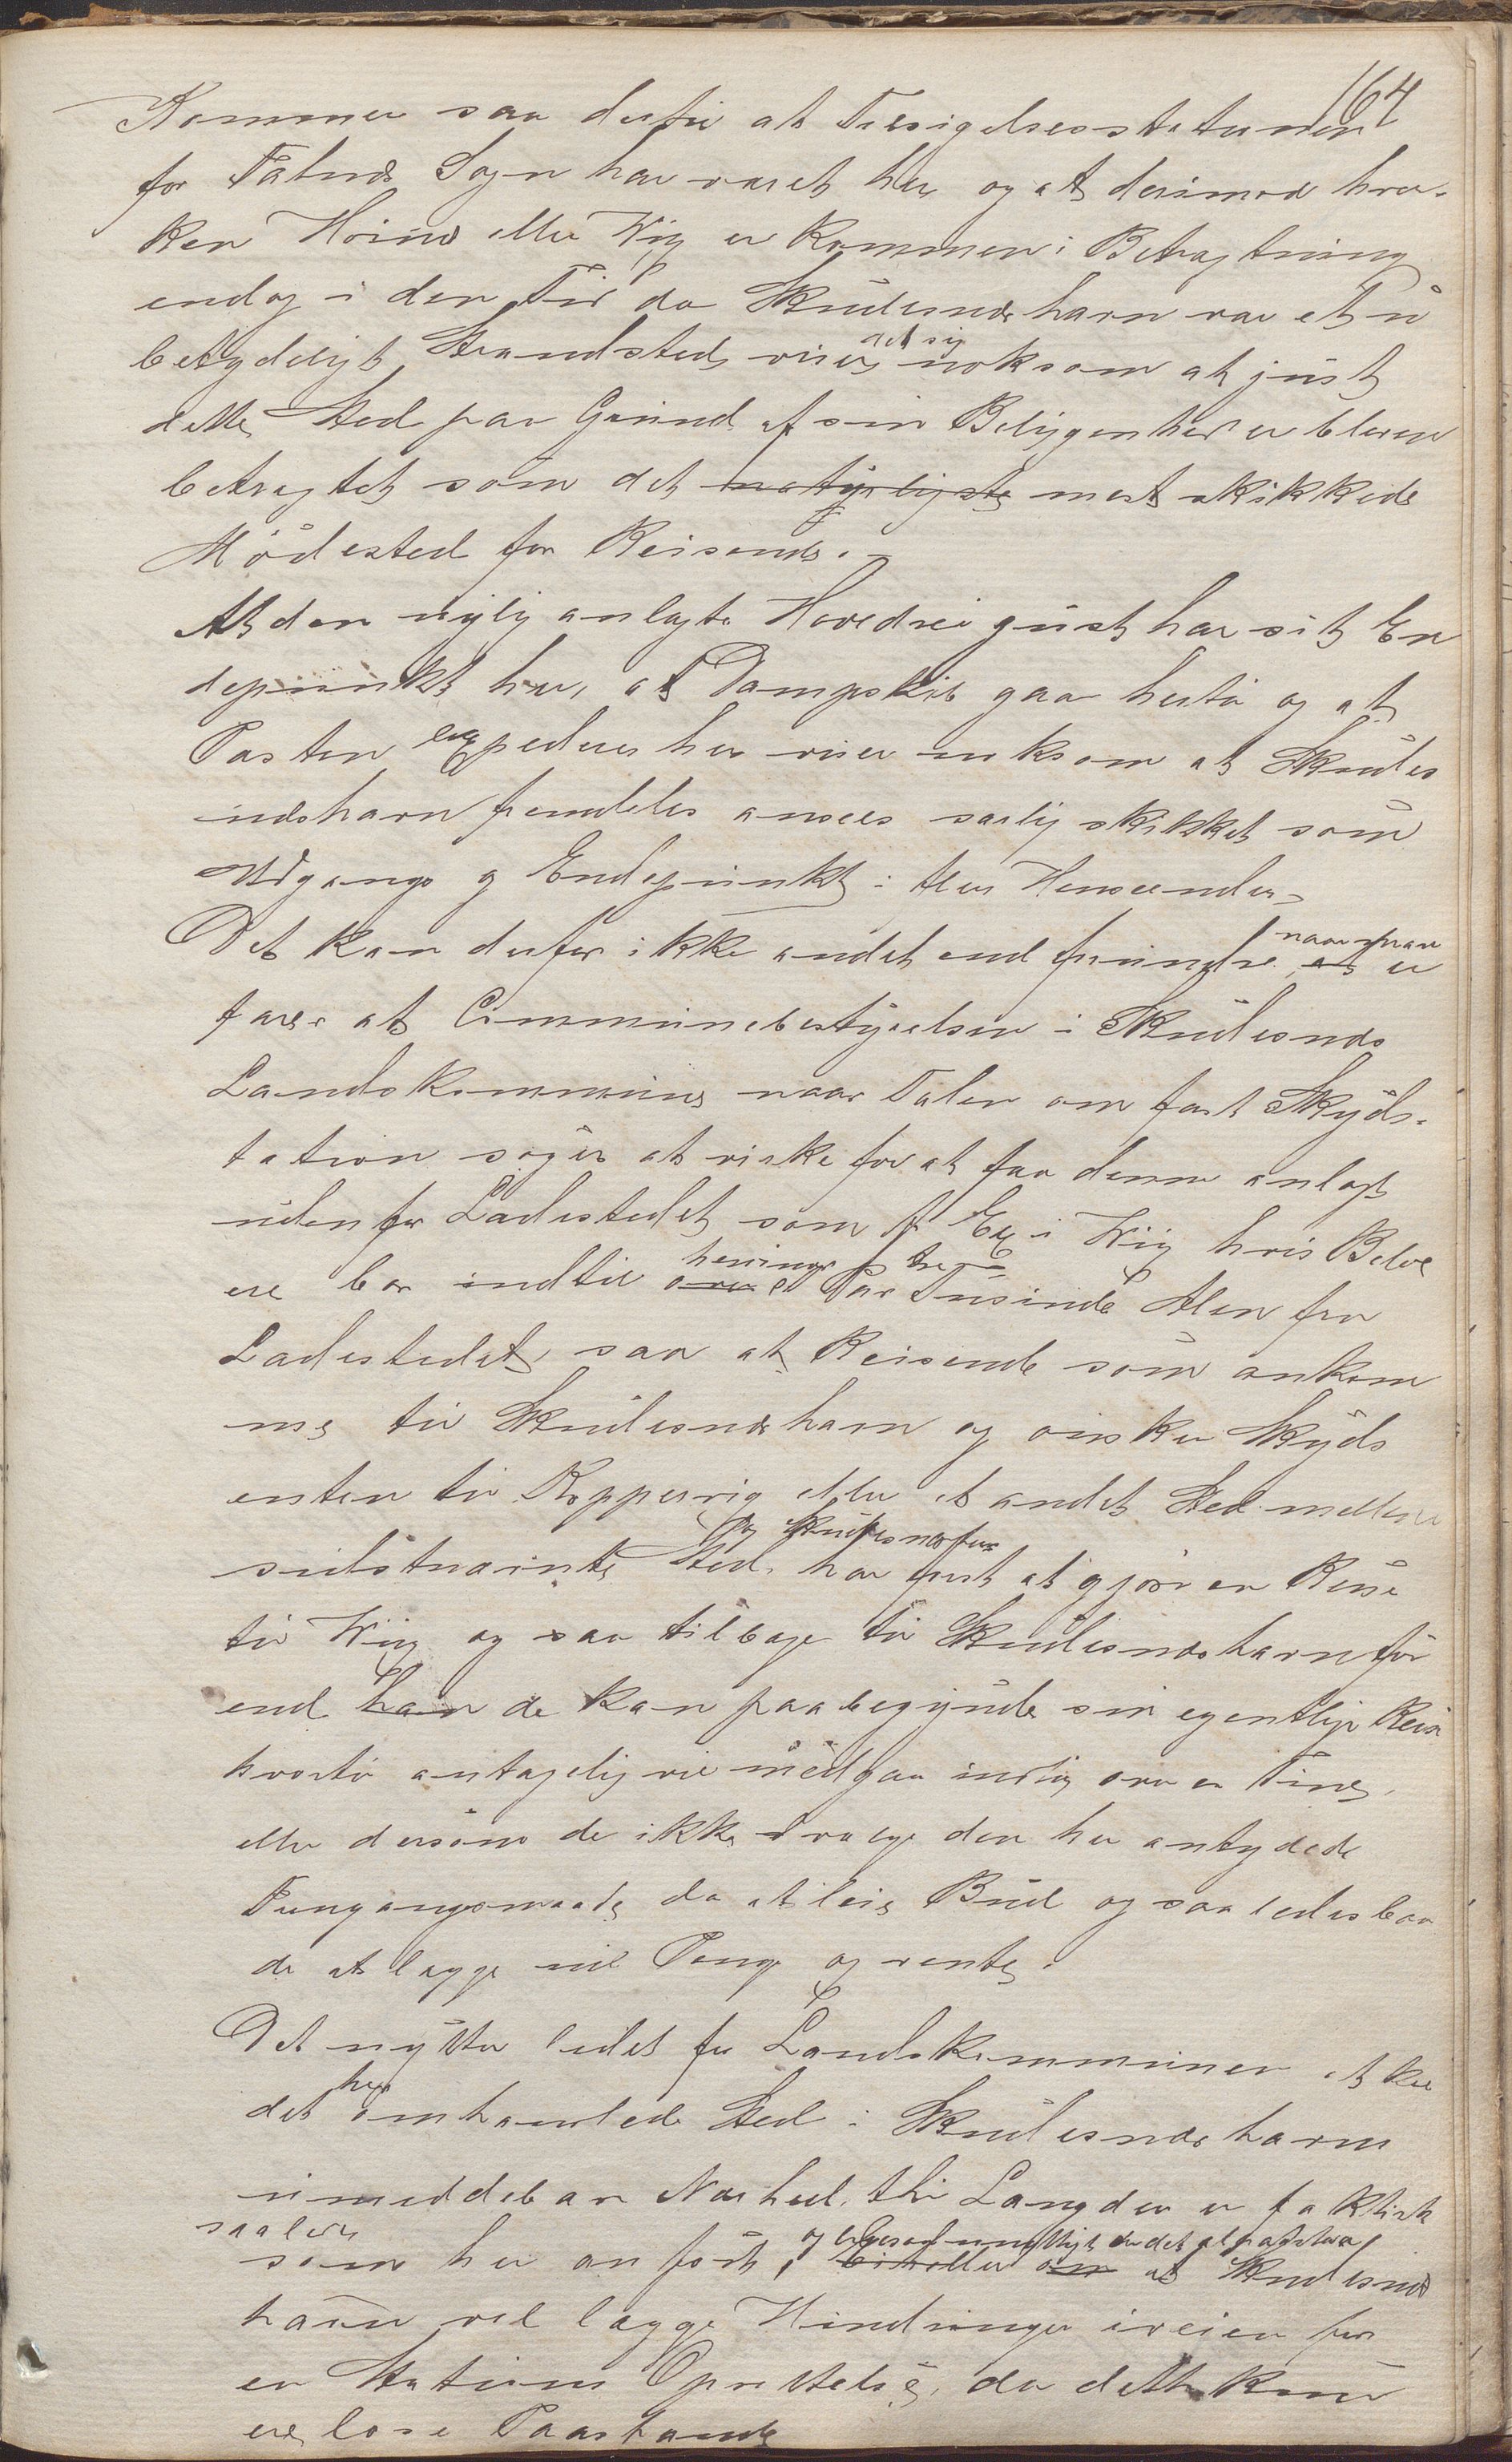 164
Kommer saa dertil at Tilsigelsesstationen
for Falnæs Sogn har været her og at derimod hver-
ken Høinæs eller Wig er kommen i Betragtning
endog i den Tid da Skudesneshavn var et u
betydeligt Strandsted, viser det sig noksom at just
dette Sted paa Grund af sin Beliggenhed er bleven
betragtet som det naturligste mest skikkede
Mødested for Reisende.-
At den nylig anlagte Hovedvei just har sit En
depunkt her, at Dampskib gaar hertil og at
Posten expederes her viser noksom at Skudes
neshavn fremdeles ansees særlig skikket som
Udgangs og Endepunkt i flere Henseender.
Det kan derfor ikke andet end forundre at naar man er
farer at Communebestyrelsen i Skudesnes
Landskommune naar Talen om fast Skyds-
tation søger at virke for at faa denne anlagt
udenfor Ladestedet som f Ex i Wig hvis Bebo
ere bor indtil over et Par Tusinde Alen fra
Ladestedet, saa at Reisende som ankom
me til Skudesneshavn og ønsker Skyds
enten til Koppervig eller et andet Sted mellem
sidstnævnte Sted og Skudesneshavn har først at gjøre en Reise
til Wig og saa tilbage til Skudesneshavn før
end han de kan paabegynde sin egentlige Reise
hvortil antagelig vil medgaa indtil over en Time,
eller dersom de ikke vælge den her antydede
Fremgangsmaade da at leie Bud og saaledes baa
de at lægge ud Penge og vente.
Det nytter lidet for Landskommunen at kalde
det her omhandlede Sted i Skudesneshavns
umiddelbare Nærhed, thi Længden er faktisk
saaledes som her anført, og ligesaa unyttigt er det at paastaa at Skudesnes
havn vil lægge Hindringer iveien for
en Stations Oprettelse, da dette kun
ere løse Paastande